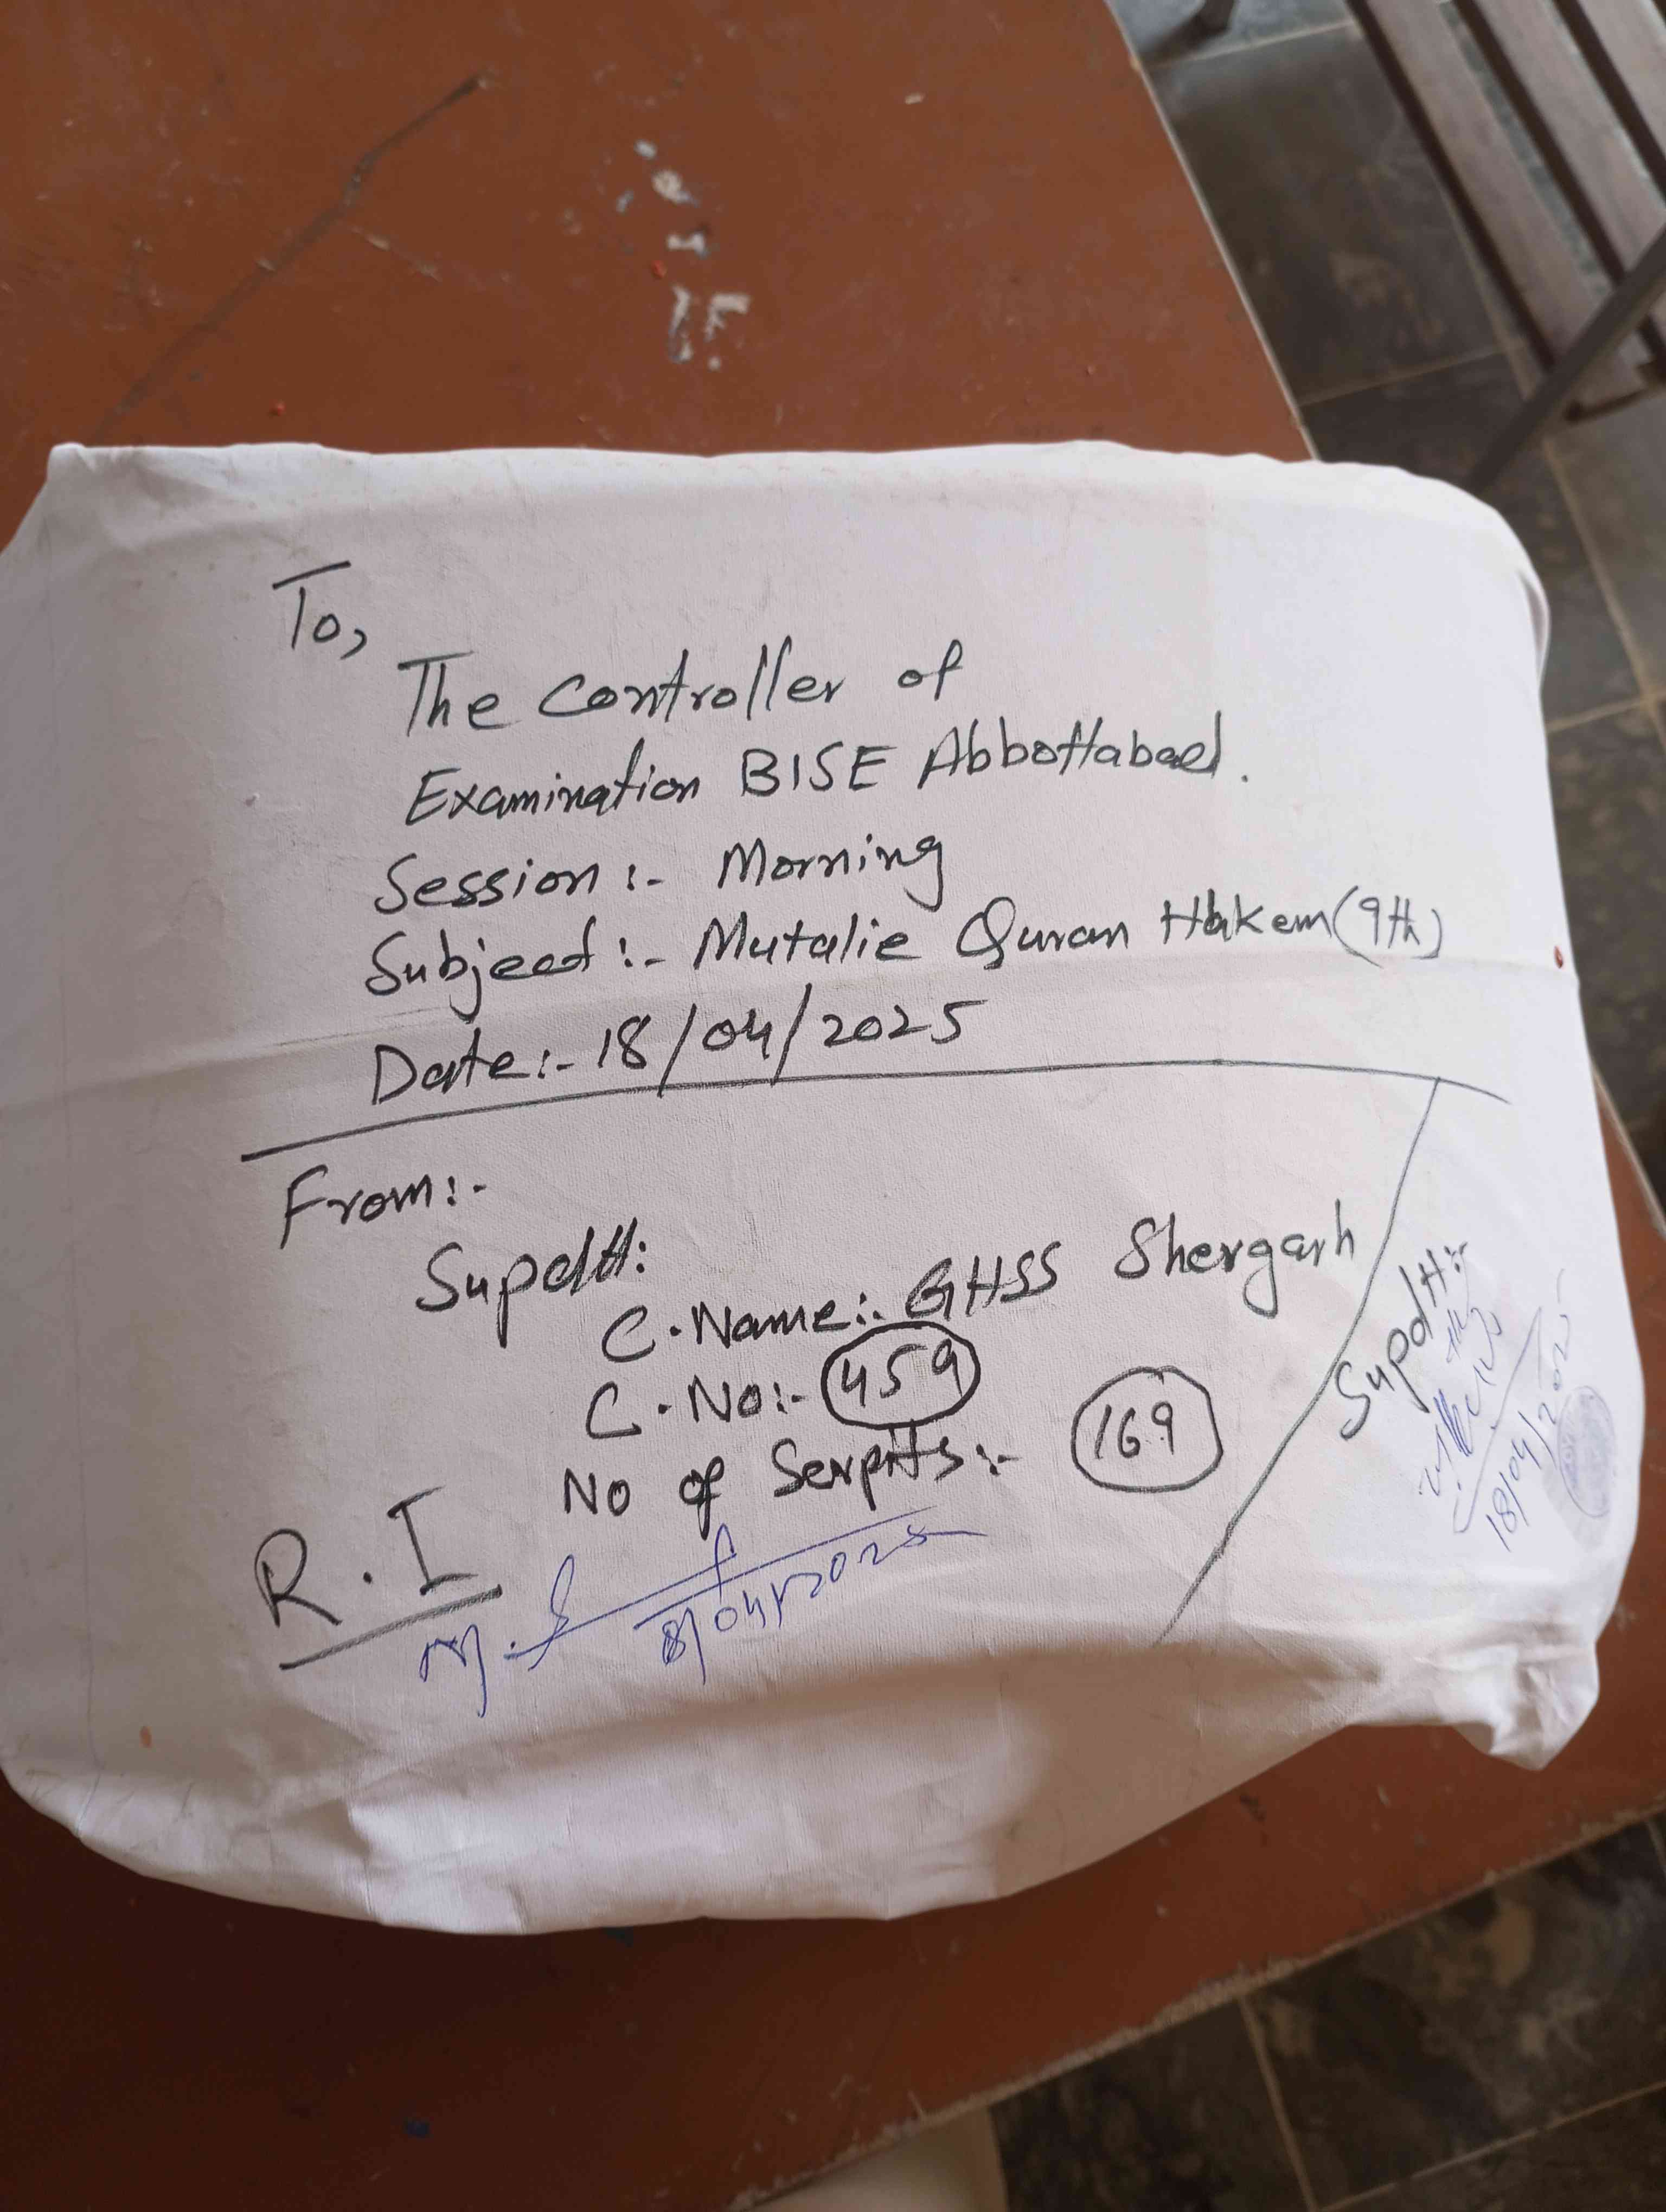 To,
The Controller of
Examination BISE Abbottabad.
Session :- Morning
Subjeed :- Mutalie Quran Hakem (9th)
Date:- 18/04/2025
From:-
Supdtt:
C.Name:- GHSS Shergarh
C.No:- 459
No of Serpits:- 169
R.I
18/04/2025
Supdtt:-
18/04/2025